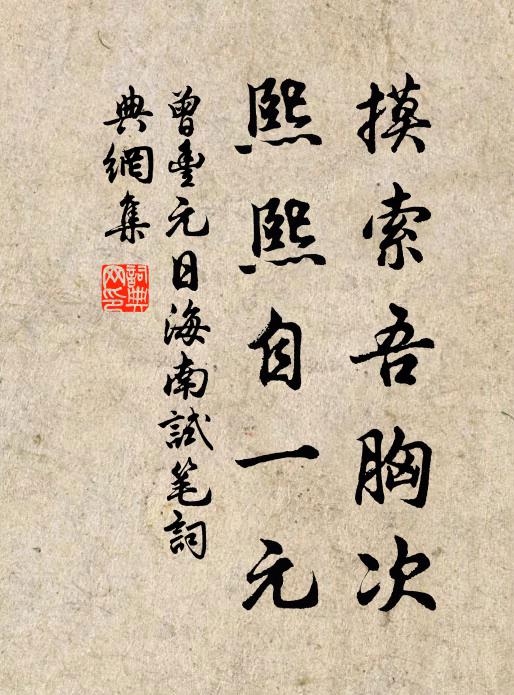 摸索吾胸次
熙熙自一元
曾豐元日海南試笔詞
典網集
詞典
网印